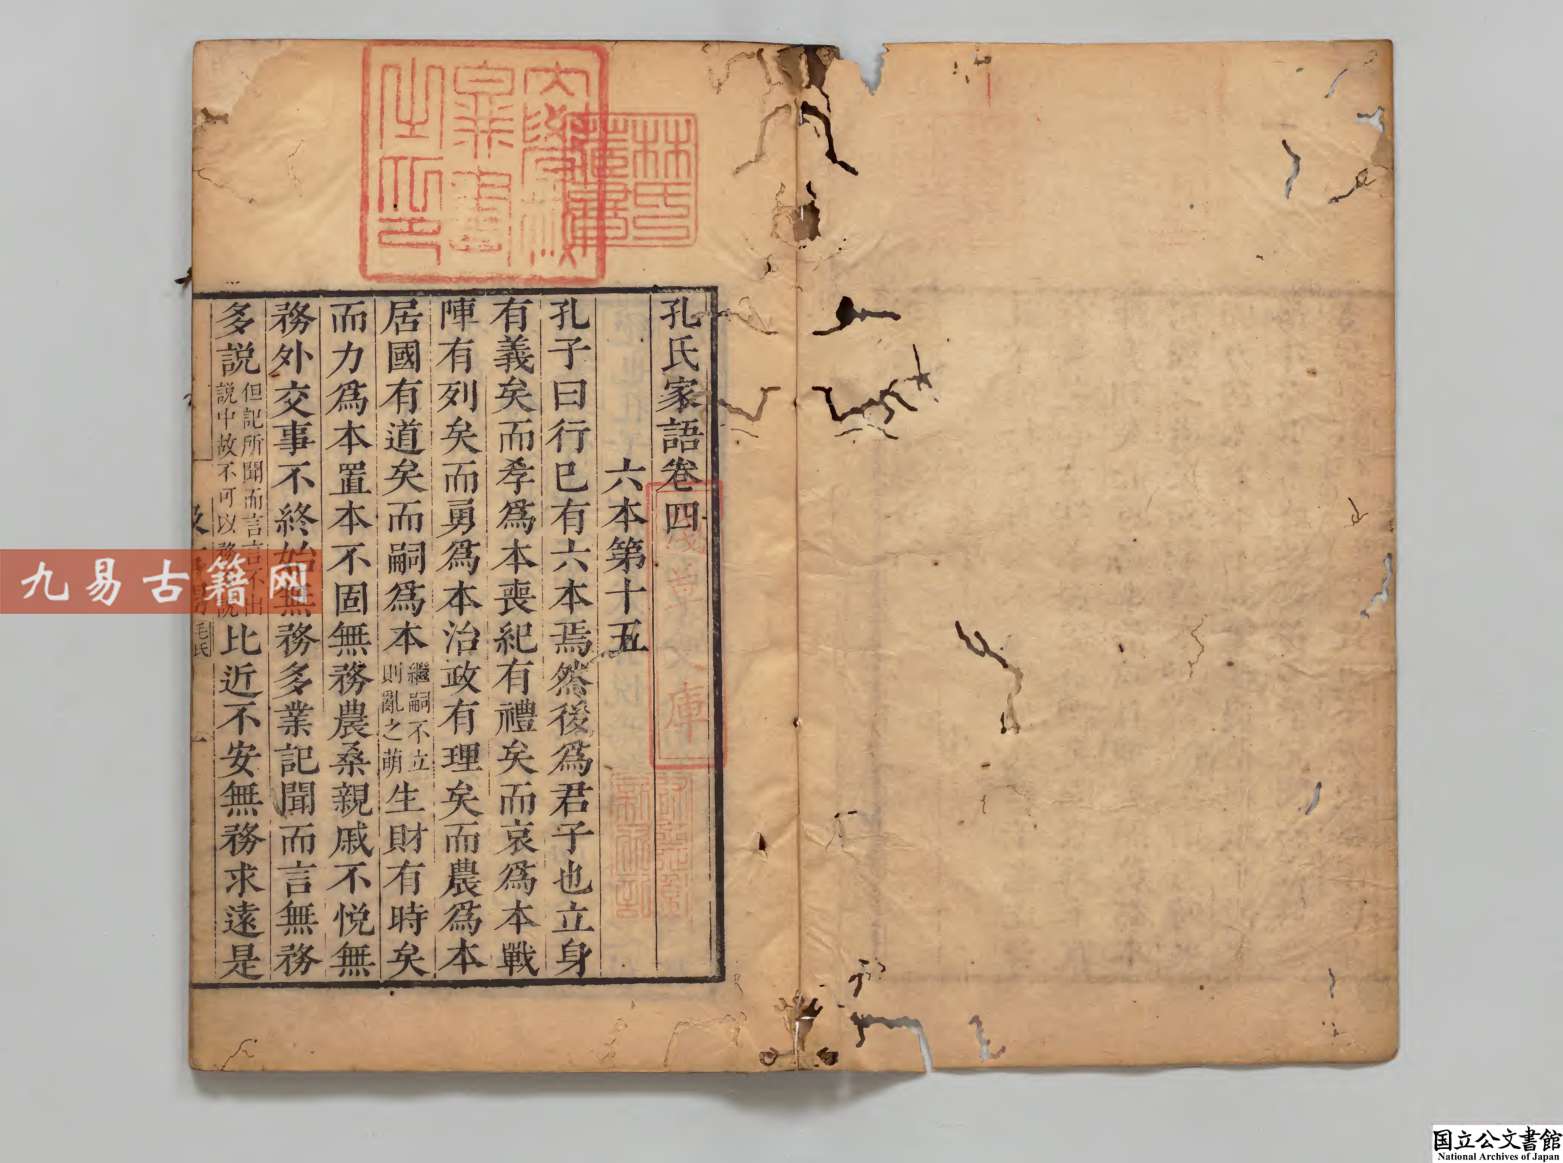 孔氏家語卷四
六本第十五
孔子曰行已有六本焉然後爲君子也立身
有義矣而孝爲本喪紀有禮矣而哀爲本戰
陣有列矣而勇爲本治政有理矣而農爲本
居國有道矣而嗣爲本繼嗣不立則亂之萌生財有時矣
而力爲本置本不固無務農桑親戚不悅無
務外交事不終始無務多業記聞而言無務
多說但記所聞而言言不出說中故不可以務多說比近不安無務求遠是
毛氏
林氏藏書
庫
九易古籍网
国立公文書館
National Archives of Japan